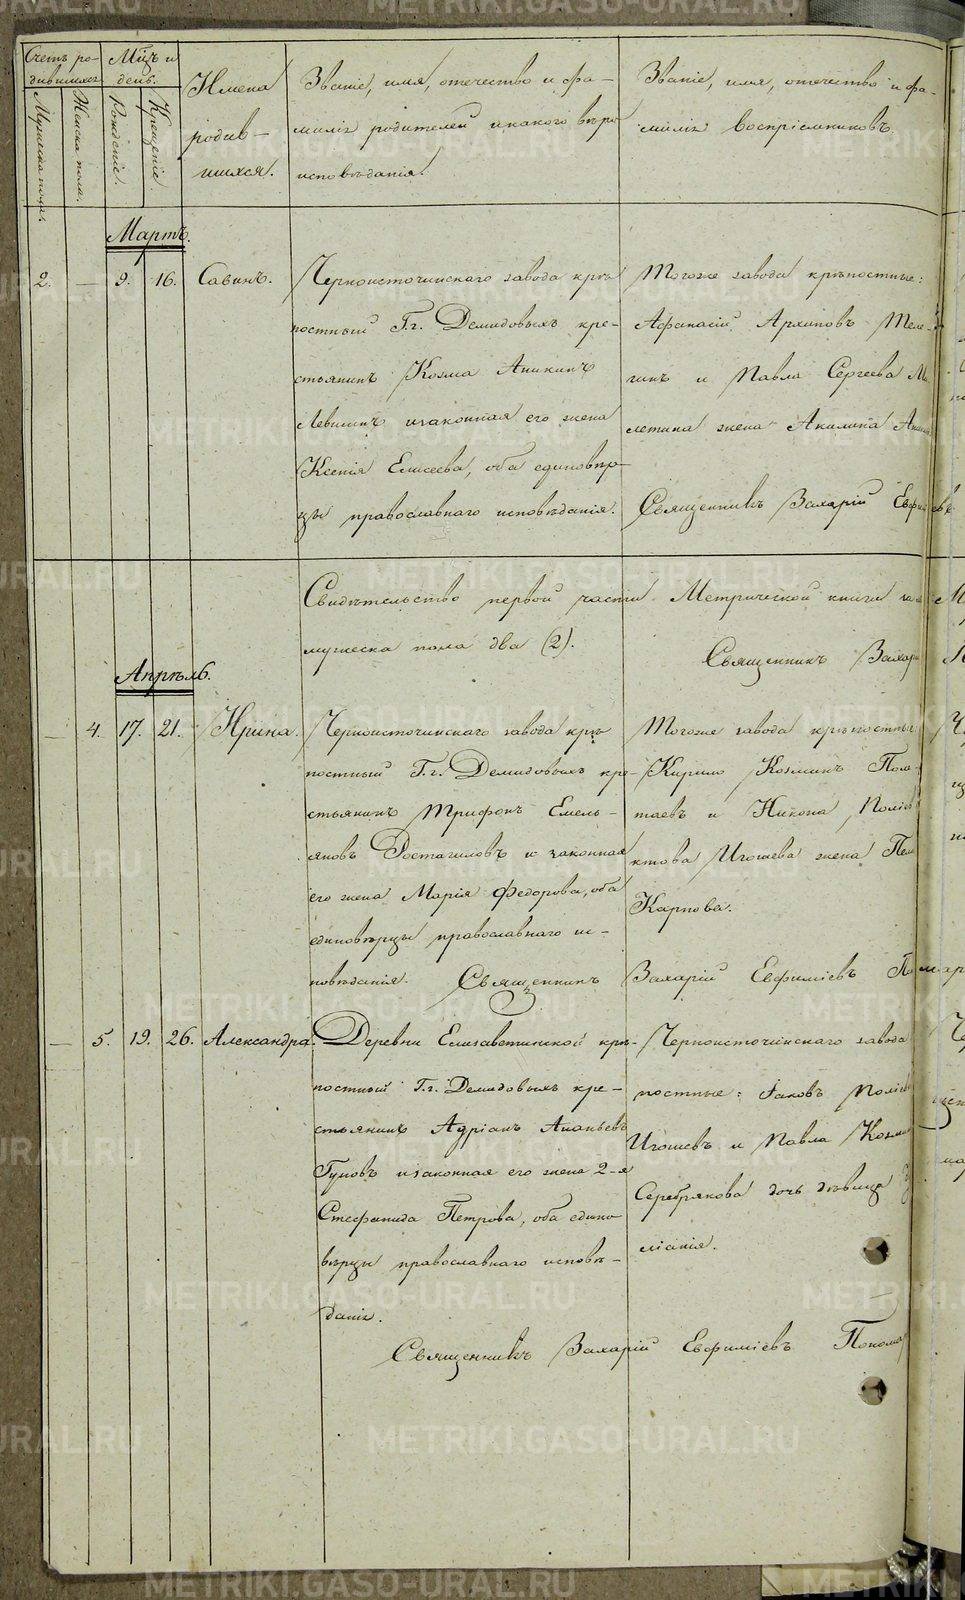 Счетъ ро-
дившихся
Мѣц. и
день.
Мужеска пола.
Женска пола.
Рожденіе.
Крещеніе
Имена
родив-
шихся.
Званіе, имя, отечество и фа-
милія родителей и какого вѣро
исповѣданія.
Званіе, имя, отечество и фа-
милія воспріемниковъ
Мартъ.
2. 9. 16. Савинъ.
Черноисточинскаго завода крѣ
постный Г.г. Демидовыхъ кре-
стьянинъ Козма Аникинъ
Левшинъ и законная его жена
Ксенія Елисеева, оба единовѣр
цы православнаго исповѣданія.
Тогоже завода крѣпостные:
Афанасій Архиповъ Теле-
гинъ и Павла Сергеева
летина жена Акилина
Священникъ Захарій
Свидѣтельство первой части Метрической книги
мужеска пола два (2).
Священникъ
Апрѣль.
4. 17. 21. Ирина.
Черноисточинскаго завода крѣ
постный Г.г. Демидовыхъ кре-
стьянинъ Трифонъ Емель-
яновъ Ростагиловъ и законная
его жена Марія Федорова, оба
единовѣрцы православнаго ис-
повѣданія.
Тогоже завода крѣпостные
Кирило Козминъ Пола-
таевъ и Никона
ктова Игошева жена
Карпова.
Священникъ Захарій Ефиміевъ
5. 19. 26. Александра.
Деревни Елизаветинской крѣ-
постный Г.г. Демидовыхъ кре-
стьянинъ Адріанъ Ананьевъ
Гуновъ и законная его жена 2-я
Стефанида Петрова, оба едино
вѣрцы православнаго исповѣ-
данія.
Черноисточинскаго завода
постные: Іаковъ
Игошевъ и Павла
Серебрякова дочь дѣвица
Священникъ Захарій Ефиміевъ
METRIKI.GASO-URAL.RU